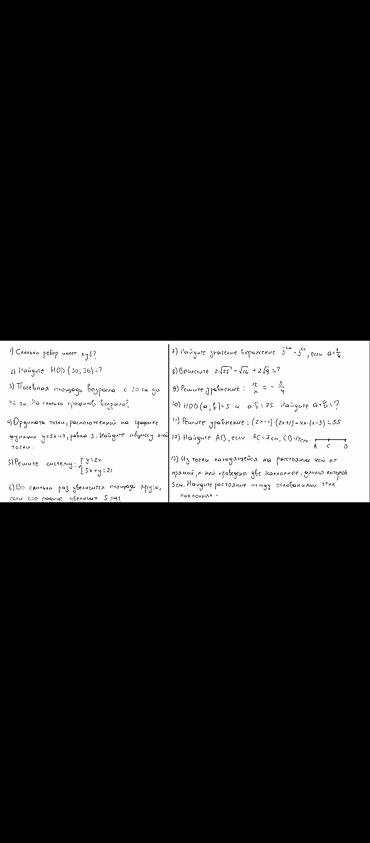 1) Сколько ребер имеет куб?
2) Найдите НОД (30, 36) = ?
3) Посевная площадь возросла с 30 га до
42 га. На сколько процентов возросла?
4) Ордината точки, расположенной на графике
функции y=5x+7, равна 3. Найдите абциссу этой
точки.
5) Решите систему: { y=2x
5x+y=21
6) Во сколько раз увеличится площадь круга,
если его радиус увеличит 5 раз
7) Найдите значение выражение
если a=1/4
8) Вычислите 2√25 - √16 + 2√9 = ?
9) Решите уравнение: 12/x = - 3/4
10) НОД (a, b)=5 и a·b=75 Найдите a+b=?
11) Решите уравнение: (2x-1)·(2x+1)-4x·(x-3)=55
12) Найдите AB, если AC=7см, CB=4см
A C B
13) Из точки находящейся на расстоянии 4см от
прямой, к ней проведены две наклонные, длина которой
5см. Найдите растояние между основаниями этих
наклонных.